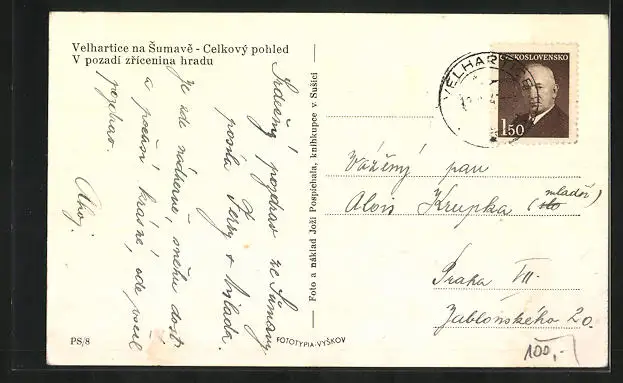 Velhartice na Šumavě - Celkový pohled
V pozadí zřícenina hradu
Srdečný pozdrav ze Šumavy
posílá Jerry + Mláďa.
Je zde nádherně, sněhu dosti
a počasí krásné, zde
pozdrav.
Ahoj.
Foto a náklad Joži Pospíchala, knihkupce v Sušici
VELHARTICE
ČESKOSLOVENSKO
1.50
Vážený pan
Alois Krupka (mladší)
Praha VII.
Jablonského 20.
100,-
PS/8
FOTOTYPIA-VYŠKOV